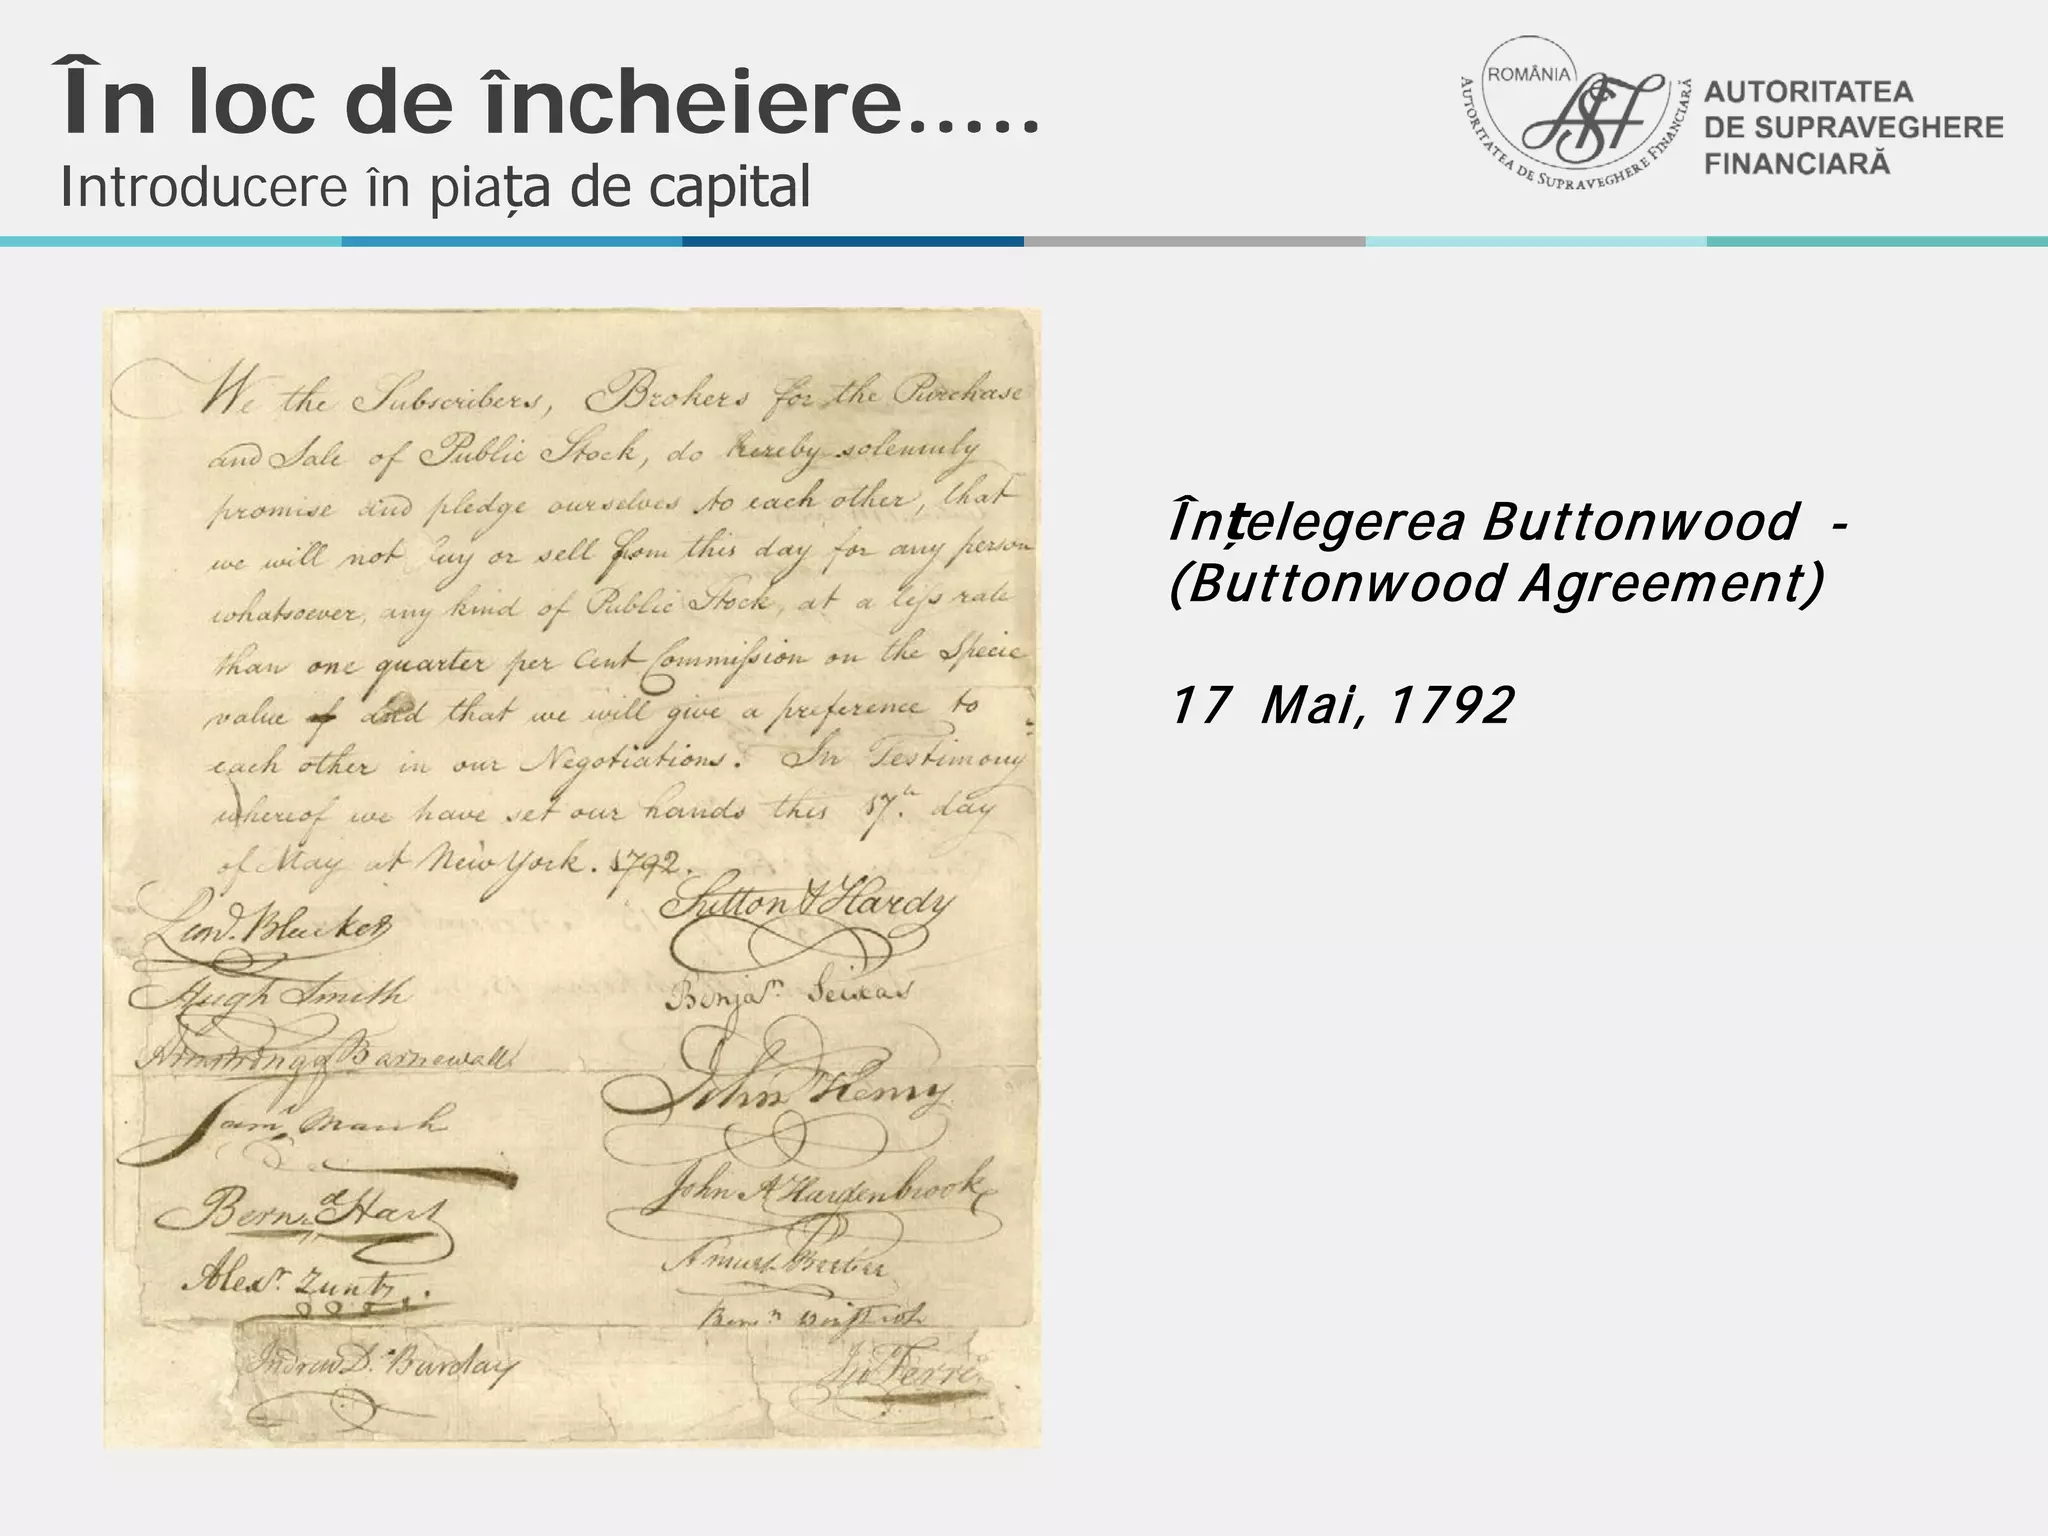 În loc de încheiere.....
Introducere în piața de capital
ROMÂNIA
AUTORITATEA DE SUPRAVEGHERE FINANCIARĂ
AUTORITATEA
DE SUPRAVEGHERE
FINANCIARĂ
We the Subscribers, Brokers for the Purchase
and Sale of Public Stock, do hereby solemnly
promise and pledge ourselves to each other, that
we will not buy or sell from this day for any person
whatsoever, any kind of Public Stock, at a less rate
than one quarter per Cent Commission on the Specie
value of and that we will give a preference to
each other in our Negotiations. In Testimony
whereof we have set our hands this 17th day
of May at New York. 1792.
Leod. Bleecker
Hugh Smith
Armstrong & Barnewall
Saml Marsh
Bernd Hart
Alexr. Zuntz
Andrew D. Barclay
Sutton & Hardy
Benjan Seixas
John Henry
John A Hardenbrook
Benn
Înțelegerea Buttonwood -
(Buttonwood Agreement)
17 Mai, 1792